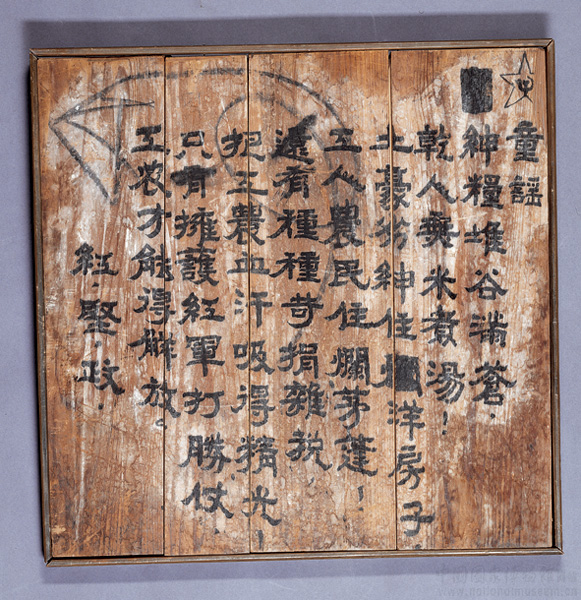 童謠
紳糧堆谷滿蒼.
乾人無米煮湯!
土豪劣紳住洋房子.
工人農民住爛茅篷!
還有種種苛捐雜稅,
把工農血汗吸得精光!
只有擁護紅軍打勝仗,
工农才能得解放。
紅.堅.政.